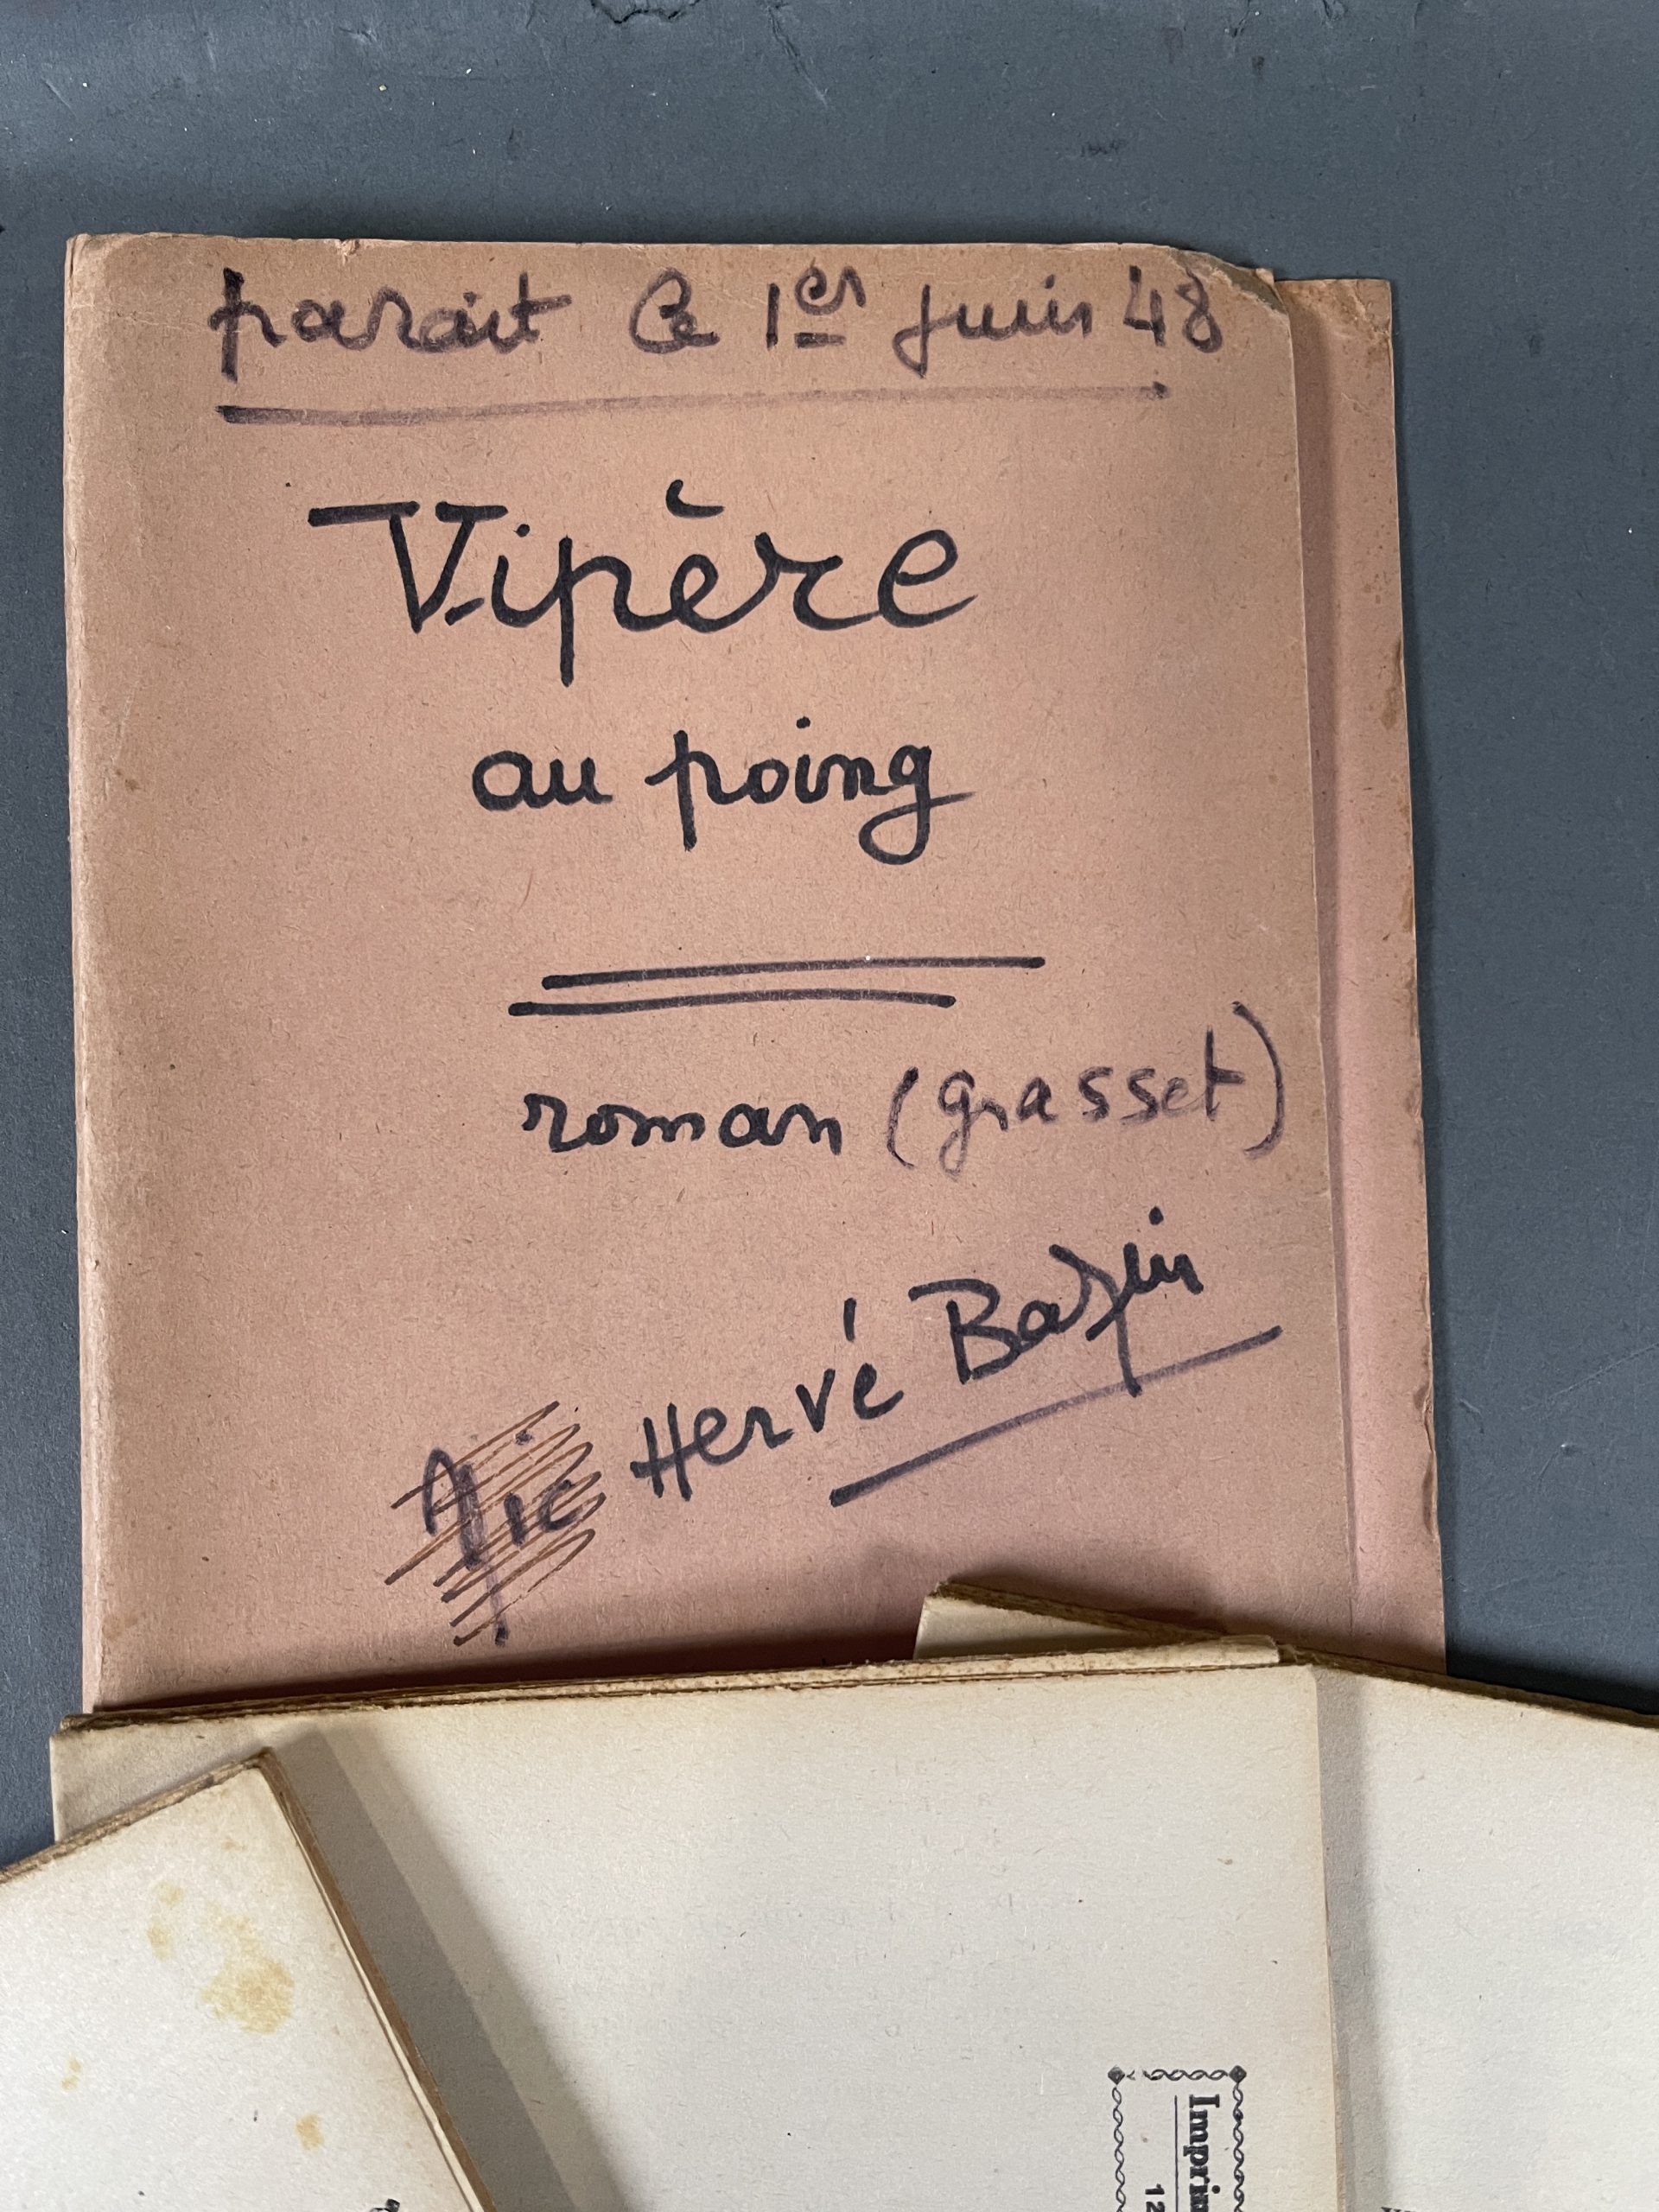 parait le 1er juin 48
Vipère
au poing
roman (grasset)
Hervé Bazin
Imprim
12